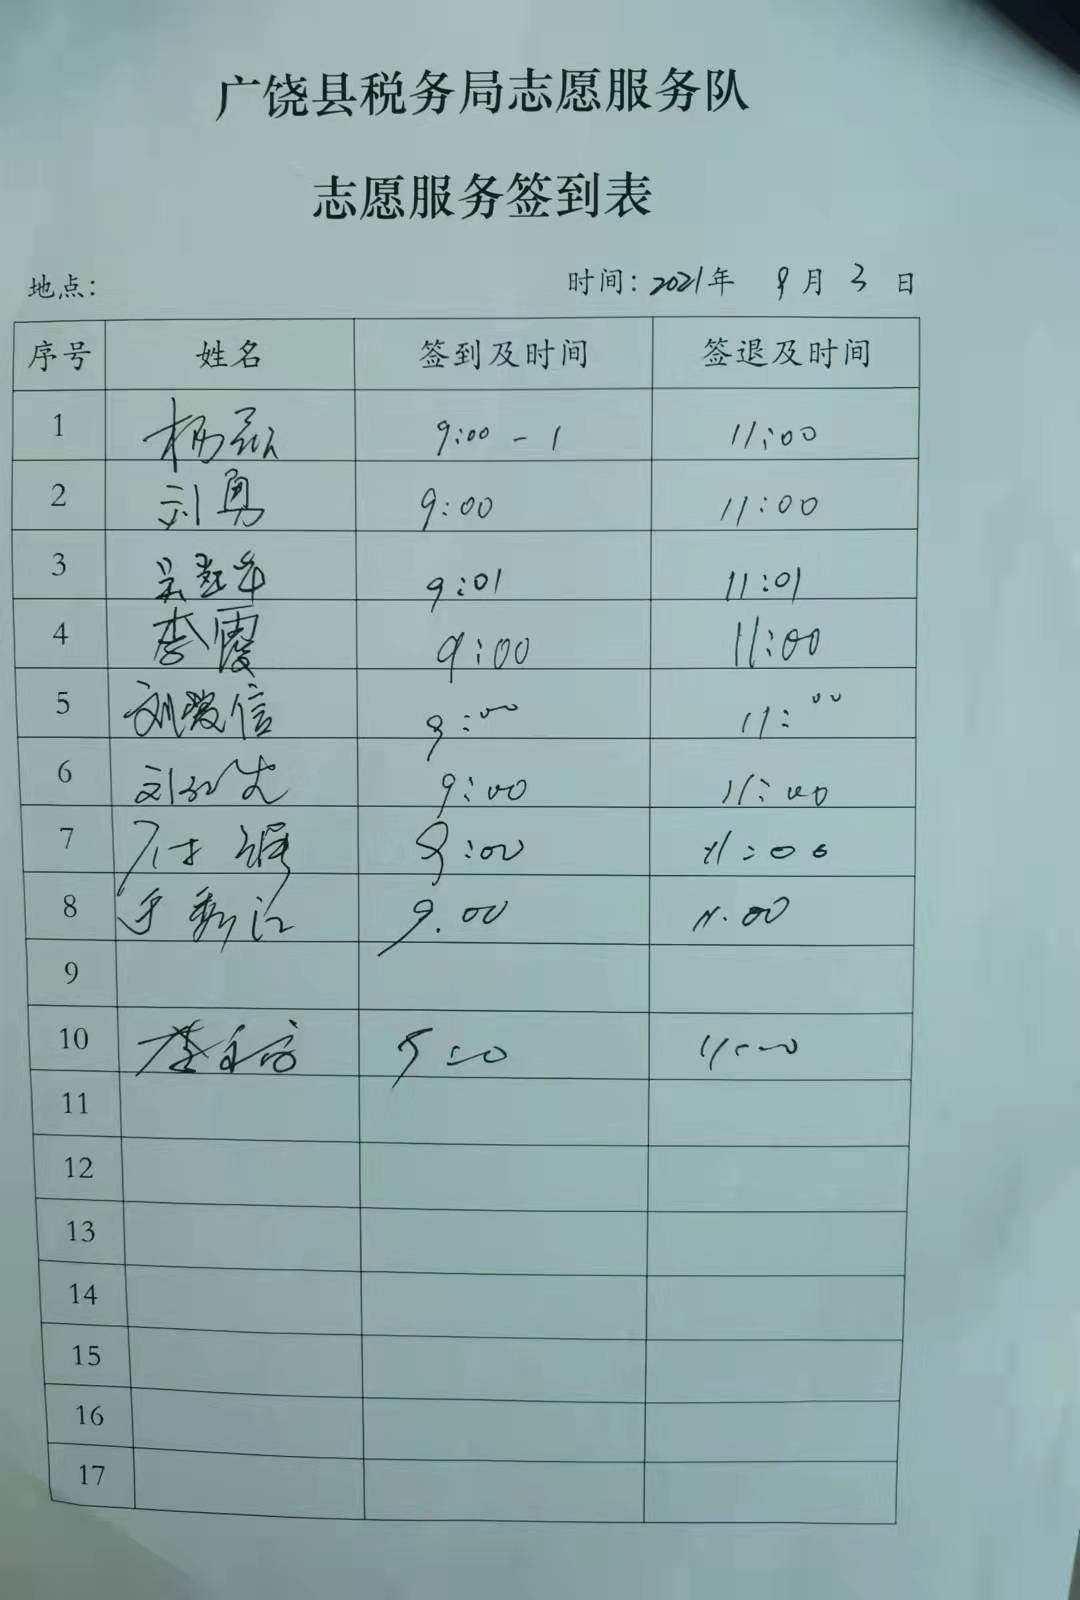 广饶县税务局志愿服务队
志愿服务签到表
地点： 时间：2021年 9月 3日
序号 姓名 签到及时间 签退及时间
1 杨 9:00 - 1 11:00
2 刘勇 9:00 11:00
3 吴 9:01 11:01
4 李霞 9:00 11:00
5 刘爱信 9:00 11:00
6 刘 9:00 11:00
7 9:00 11:00
8 9.00 11.00
9
10 9:00 11:00
11
12
13
14
15
16
17